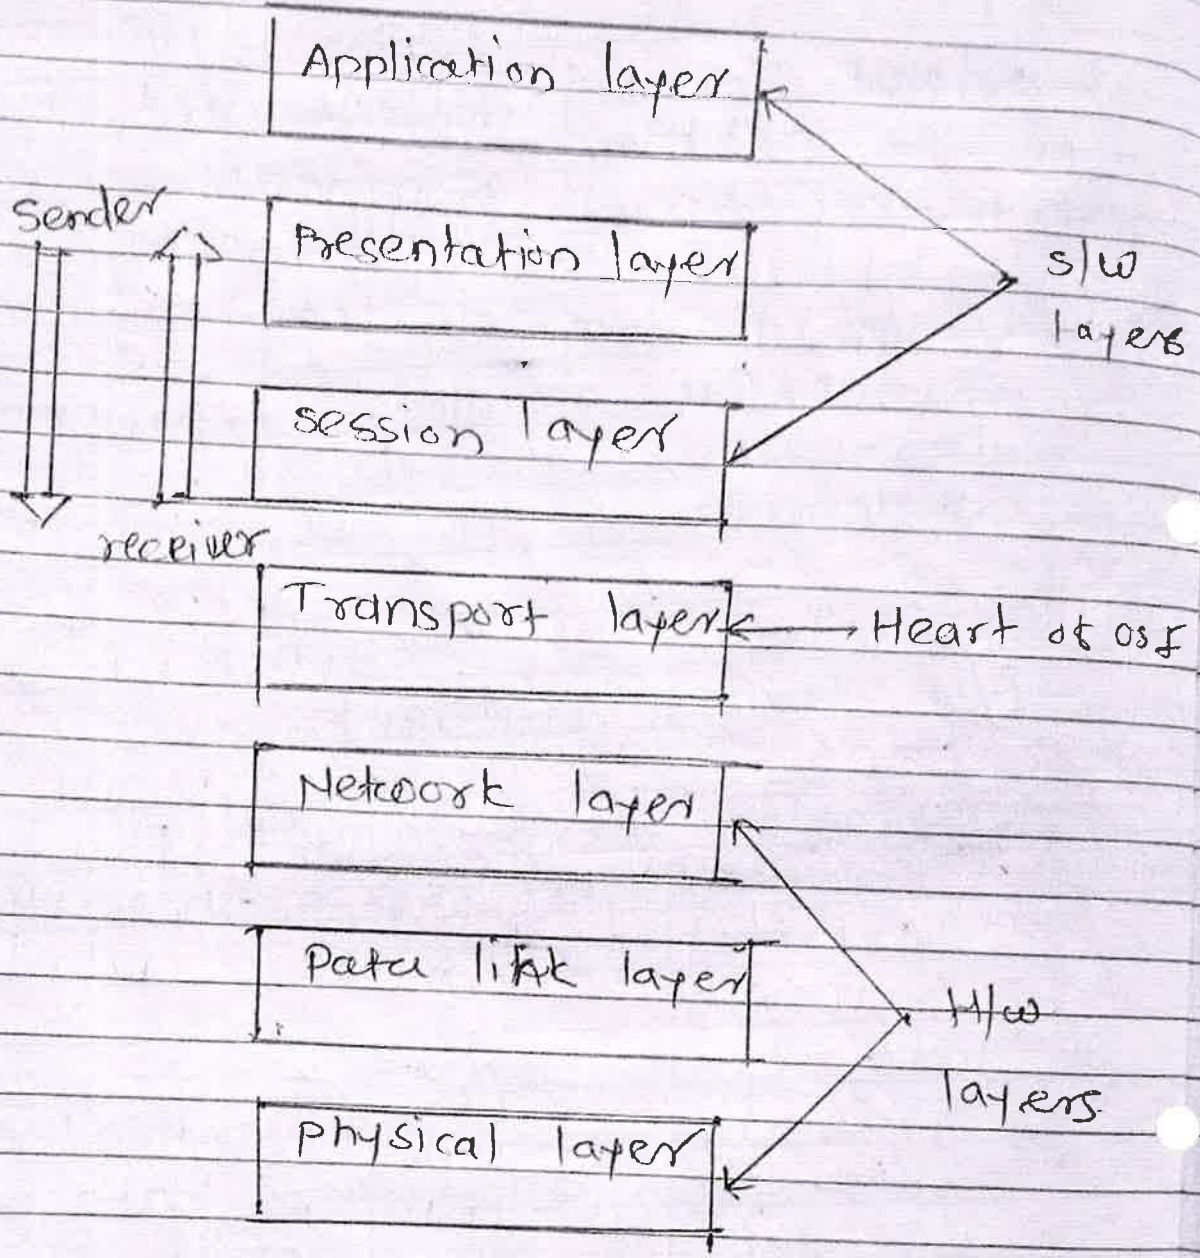 Application layer
sender
Presentation layer
s/w
layers
session layer
receiver
Transport layer
Heart of OSI
Network layer
Data link layer
H/w
layers
physical layer